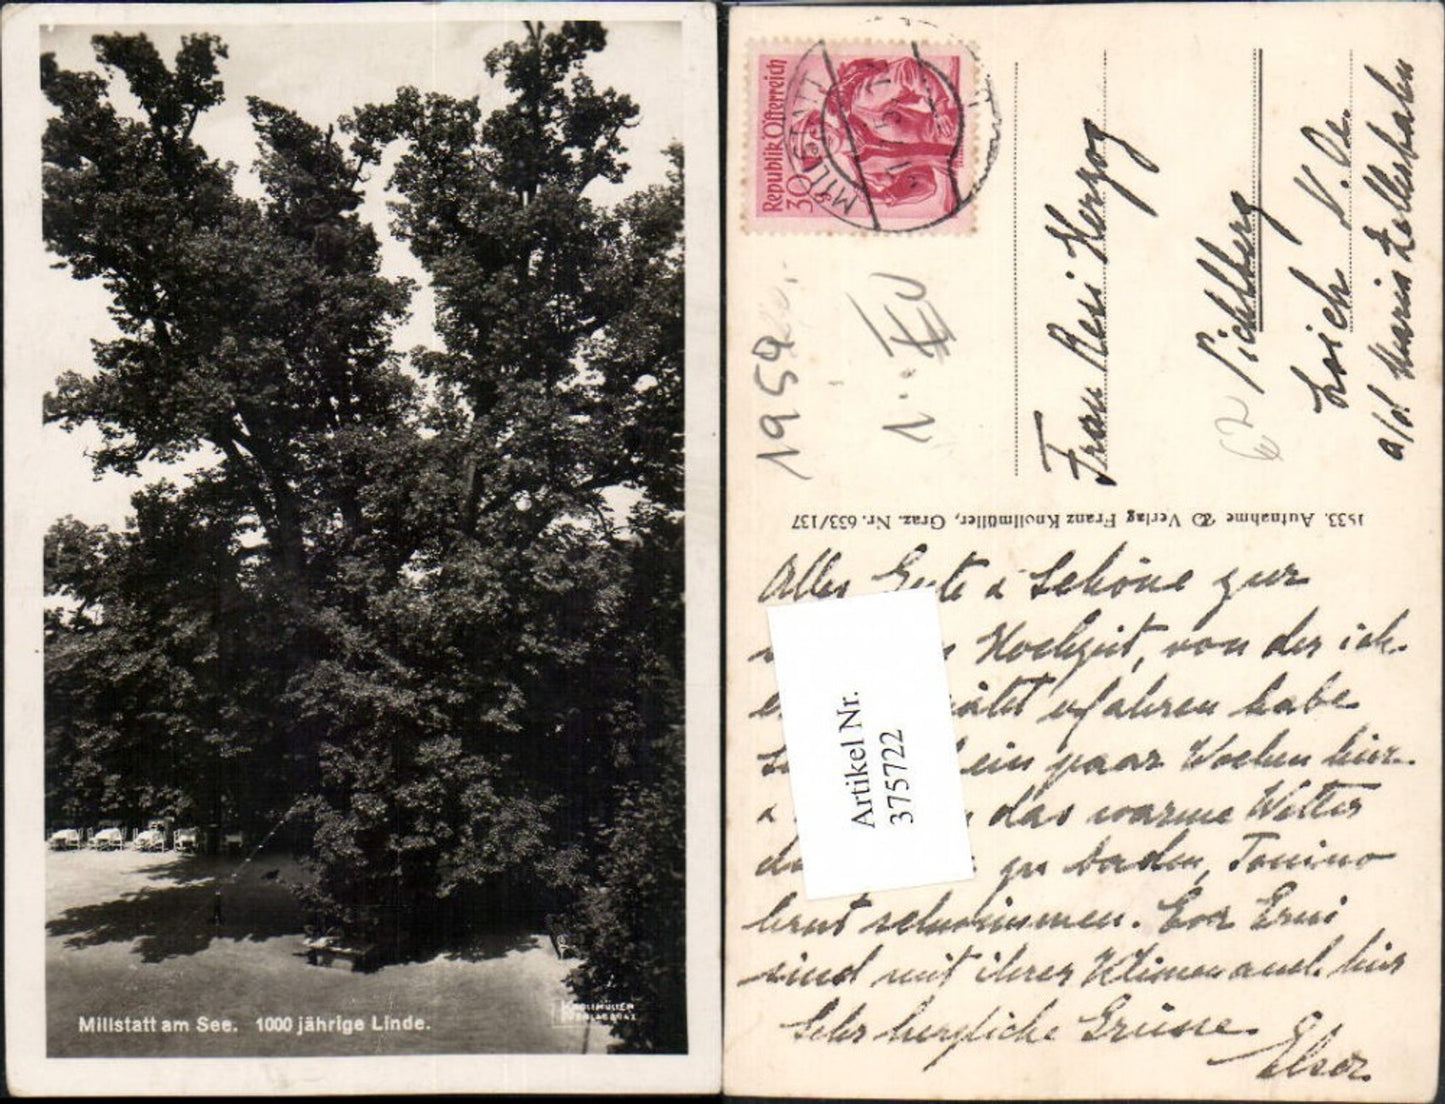 Millstatt am See. 1000 jährige Linde.
KNOLLMÜLLER
VERLAG GRAZ
Republik Österreich
30 g
MILLSTATT
1959
Frau Resi Herzog
Pichlberg
62
Loich N.Oe.
a/d Mariazellerbahn
1933. Aufnahme Verlag Franz Knollmüller, Graz. Nr. 633/137
Alles Gute & Schöne zur
Hochzeit, von der ich
erfahren habe
ein paar Wochen hier
& das warme Wetter
zu baden, Tonino
lernt schwimmen. Eva Erni
sind mit ihrer Kleinen auch hier
Sehr herzliche Grüsse
Artikel Nr.
375722